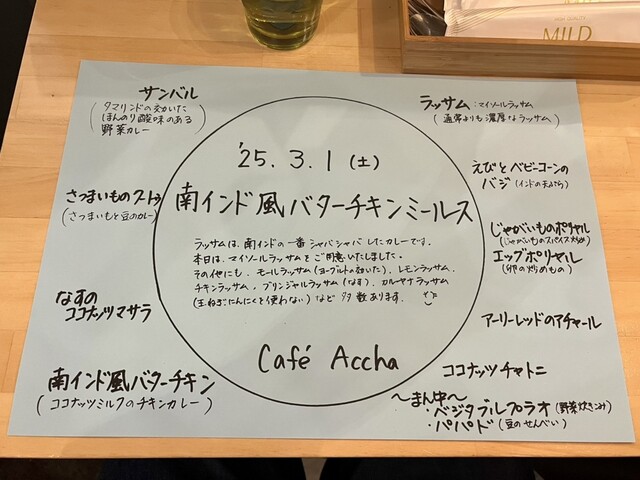 MILD
サンバル
(タマリンドの効いた
ほんのり酸味のある
野菜カレー)
ラッサム:マイソールラッサム
(通常よりも濃厚なラッサム)
'25.3.1(土)
えびとベビーコーンの
バジ(インドの天ぷら)
さつまいものストゥ
(さつまいもと豆のカレー)
南インド風バターチキンミールス
じゃがいものポリヤル
(じゃがいものスパイス炒め)
エッグポリヤル
(卵の炒めもの)
ラッサムは、南インドの一番シャバシャバしたカレーです。
本日は、マイソールラッサムをご用意いたしました。
その他にも、モールラッサム(ヨーグルトの効いた)、レモンラッサム、
チキンラッサム、ブリンジャルラッサム(なす)、カルヤナラッサム
(玉ねぎ、にんにくを使わない)など多数あります。
なすの
ココナッツマサラ
アーリーレッドのアチャール
Café Accha
ココナッツチャトニ
南インド風バターチキン
(ココナッツミルクのチキンカレー)
〜まん中〜
・ベジタブルプラオ(野菜炊きこみ)
・パパド(豆のせんべい)